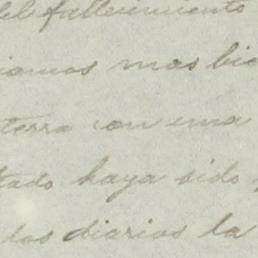 del fallecimiento
mas bie
terra con una
tado haya sido
los diarios la